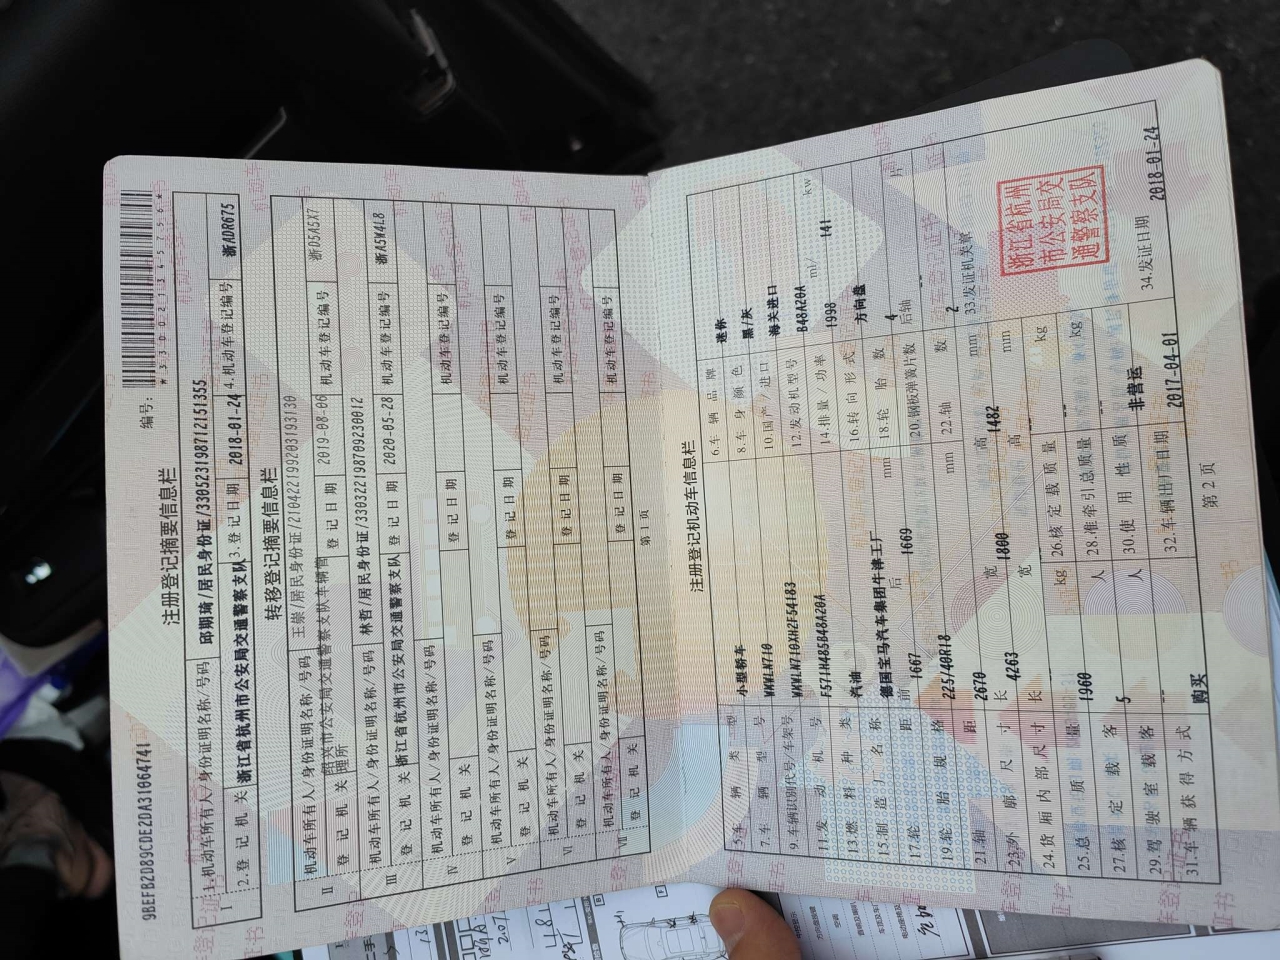 9BEFB2D89CDE2DA31064741
编号:
*330213457564*
注册登记摘要信息栏
I
1.机动车所有人/身份证明名称/号码 邱期琦/居民身份证/330523198712151355
2.登记机关 浙江省杭州市公安局交通警察支队 3.登记日期 2018-01-24 4.机动车登记编号 浙ADR675
转移登记摘要信息栏
II
机动车所有人/身份证明名称/号码 王崇/居民身份证/210422199203193130
登记机关 绍兴市公安局交通警察支队车辆管理所 登记日期 2019-08-06 机动车登记编号 浙D5A5X7
III
机动车所有人/身份证明名称/号码 林哲/居民身份证/330322198709230012
登记机关 浙江省杭州市公安局交通警察支队 登记日期 2020-05-28 机动车登记编号 浙A5W4L8
IV
机动车所有人/身份证明名称/号码
登记机关 登记日期 机动车登记编号
V
机动车所有人/身份证明名称/号码
登记机关 登记日期 机动车登记编号
VI
机动车所有人/身份证明名称/号码
登记机关 登记日期 机动车登记编号
VII
机动车所有人/身份证明名称/号码
登记机关 登记日期 机动车登记编号
第1页
注册登记机动车信息栏
5.车辆类型 小型轿车 6.车辆品牌 迷你
7.车辆型号 WMWLN710 8.车身颜色 黑/灰
9.车辆识别代号/车架号 WMWLN710XH2F54183 10.国产/进口 海关进口
11.发动机号 F571H485B48A20A 12.发动机型号 B48A20A
13.燃料种类 汽油 14.排量/功率 1998 ml/ 141 kw
15.制造厂名称 德国宝马汽车集团牛津工厂 16.转向形式 方向盘
17.轮距 前 1667 后 1669 mm 18.轮胎数 4
19.轮胎规格 225/40R18 20.钢板弹簧片数 后轴 -- 片
21.轴距 2670 mm 22.轴数 2
23.外廓尺寸 长 4263 宽 1800 高 1482 mm 33.发证机关章
24.货厢内部尺寸 长 宽 高 mm
25.总质量 1960 kg 26.核定载质量 -- kg
27.核定载客 5 人 28.准牵引总质量 -- kg
29.驾驶室载客 -- 人 30.使用性质 非营运
31.车辆获得方式 购买 32.车辆出厂日期 2017-04-01 34.发证日期 2018-01-24
浙江省杭州
市公安局交
通警察支队
第2页